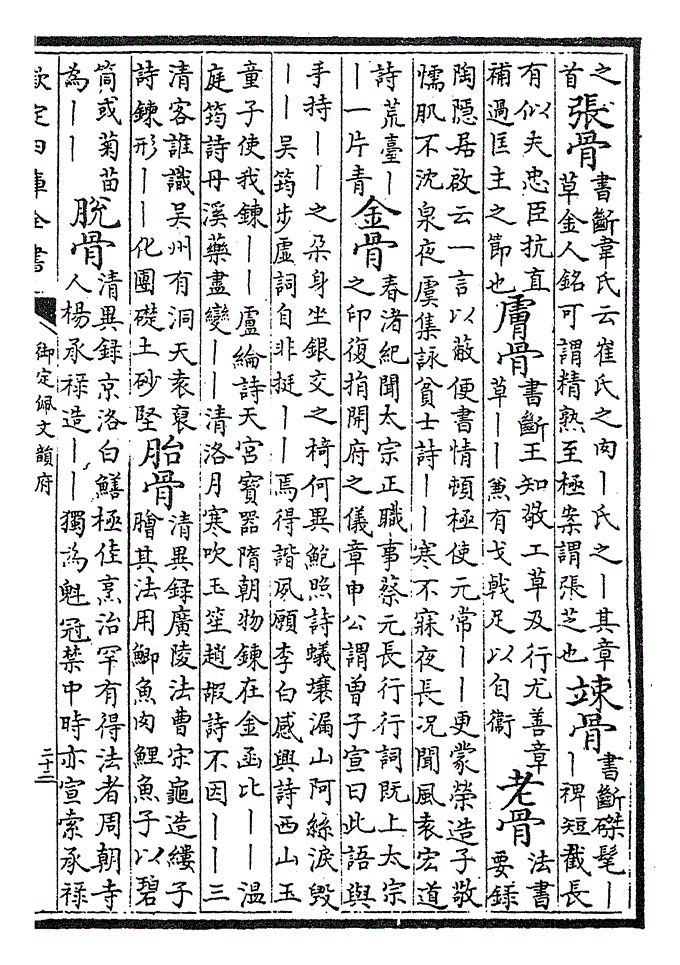 之首張骨書斷韋氏云崔氏之肉丨氏之丨其章草金人銘可謂精熟至極案謂張芝也竦骨書斷磔髦丨丨裨短截長
有似夫忠臣抗直補過匡主之節也膚骨書斷王知敬工草及行尤善章草丨丨兼有戈戟足以自衛老骨法書要録
陶隠居啟云一言以蔽便書情頓極使元常丨丨更蒙榮造子敬懦肌不沈泉夜虞集詠貧士詩丨丨寒不寐夜長况聞風袁宏道
詩荒臺丨丨一片青金骨春渚紀聞太宗正職事蔡元長行行詞既上太宗之印復捐開府之儀章申公謂曽子宣曰此語與
手持丨丨之朶身坐銀交之椅何異鮑照詩蟻壤漏山阿絲淚毀丨丨吳筠步虛詞自非挺丨丨焉得諧夙願李白感興詩西山玉
童子使我鍊丨丨盧綸詩天宮寶器隋朝物鍊在金函比丨丨溫庭筠詩丹溪藥盡變丨丨清洛月寒吹玉笙趙嘏詩不因丨丨三
清客誰識吳州有洞天袁裒詩鍊形丨丨化團礎土砂堅胎骨清異録廣陵法曹宋龜造縷子膾其法用鯽魚肉鯉魚子以碧
筒或菊苗為丨丨脫骨清異録京洛白鱔極佳烹治罕有得法者周朝寺人楊承禄造丨丨獨為魁冠禁中時亦宣索承禄
欽定四庫全書
御定佩文韻府
二十三